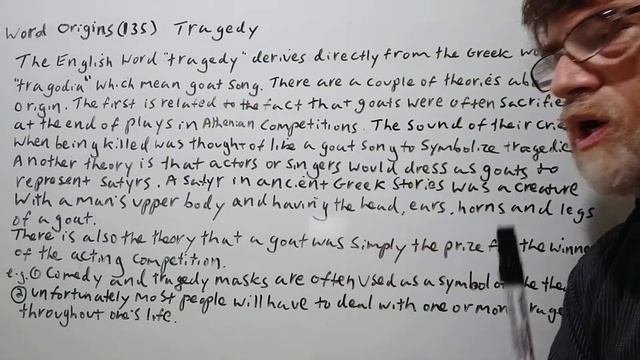 Word Origins (135) Tragedy
The English word "tragedy" derives directly from the Greek
"tragodia" which mean goat song. There are a couple of theories
origin. The first is related to the fact that goats were often
at the end of plays in Athenian Competitions. The sound of their
when being killed was thought of like a goat song to symbolize
Another theory is that actors or singers would dress as goats to
represent Satyrs. A satyr in ancient Greek stories was a creature
with a man's upper body and having the head, ears, horns and legs
of a goat.
There is also the theory that a goat was simply the prize the
of the acting competition.
e.g. ① Comedy and tragedy masks are often used as a symbol
② Unfortunately most people will have to deal with one or
throughout one's life.